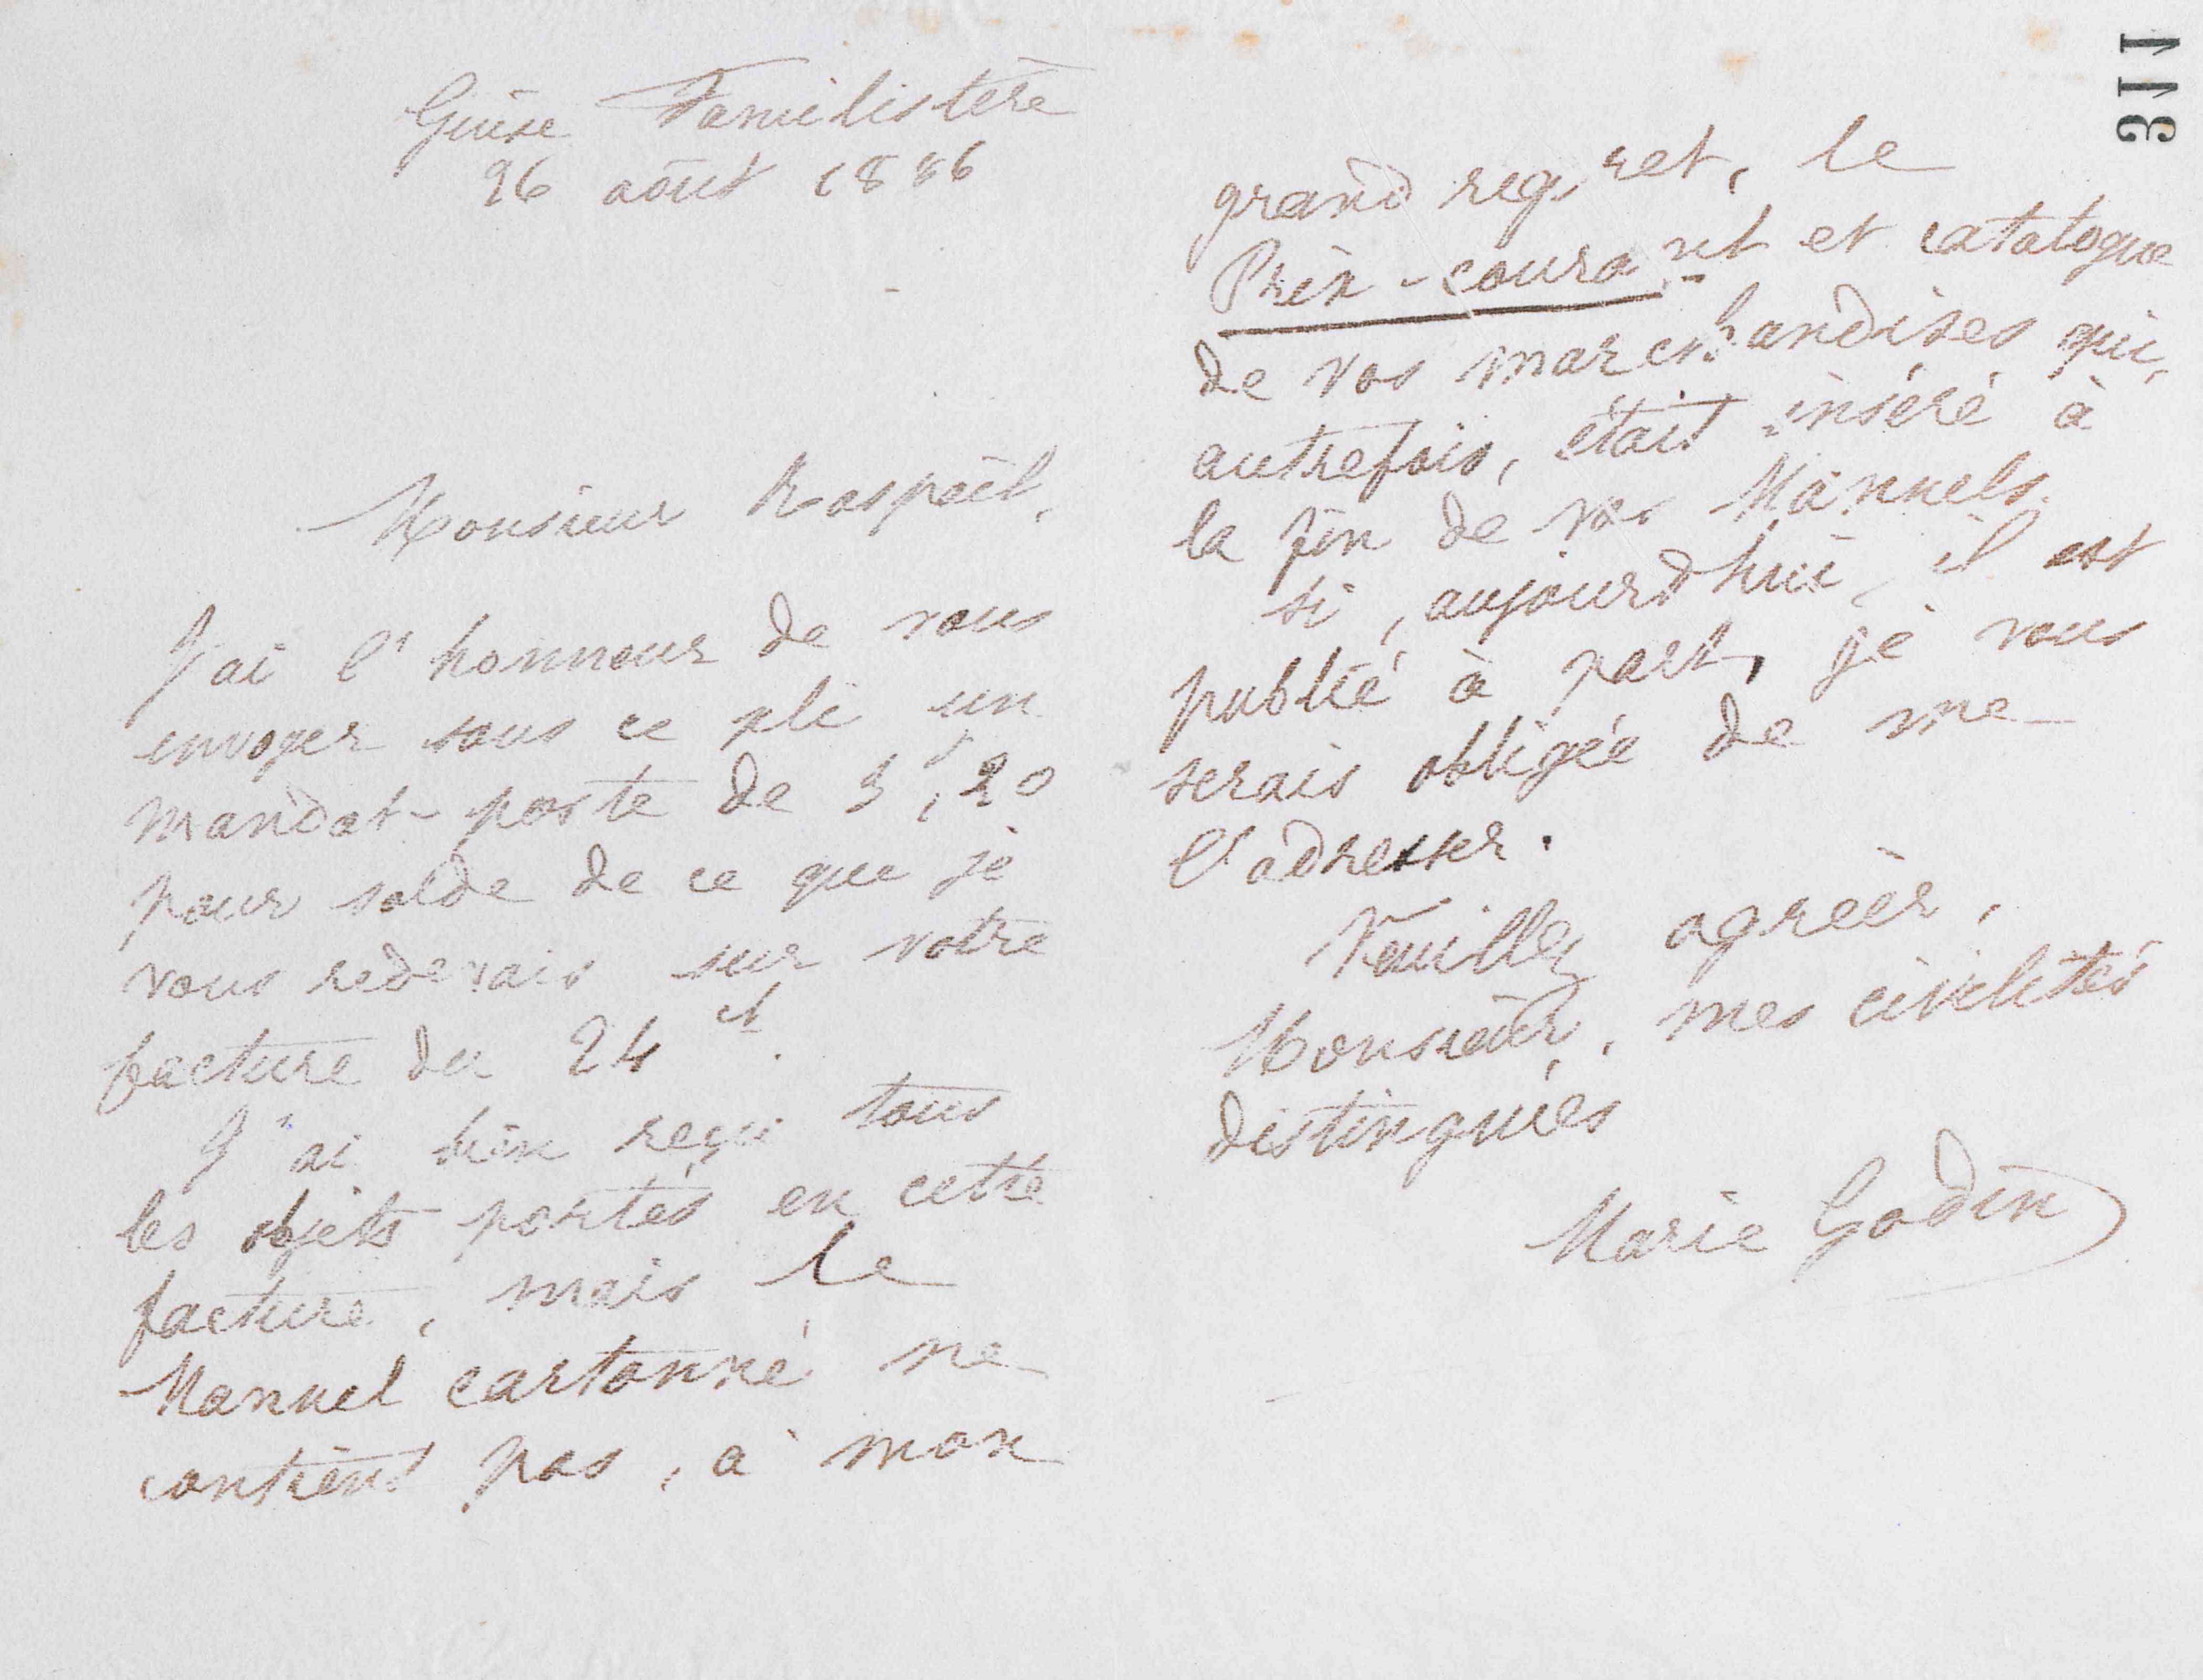 Guise Familistère
26 août 1886
Monsieur Raspail,
J'ai l'honneur de vous
envoyer sous ce pli un
mandat-poste de 3f,20
pour solde de ce que je
vous redevais sur votre
facture du 24 ct.
J'ai bien reçu tous
les objets portés en cette
facture, mais le
Manuel cartonné ne
contient pas, à mon
grand regret, le
Prix-courant et catalogue
de vos marchandises qui,
autrefois, était inséré à
la fin de vos Manuels.
Si, aujourd'hui, il est
publié à part, je vous
serais obligée de me
l'adresser.
Veuillez agréer,
Monsieur, mes civilités
distinguées
Marie Godin
311